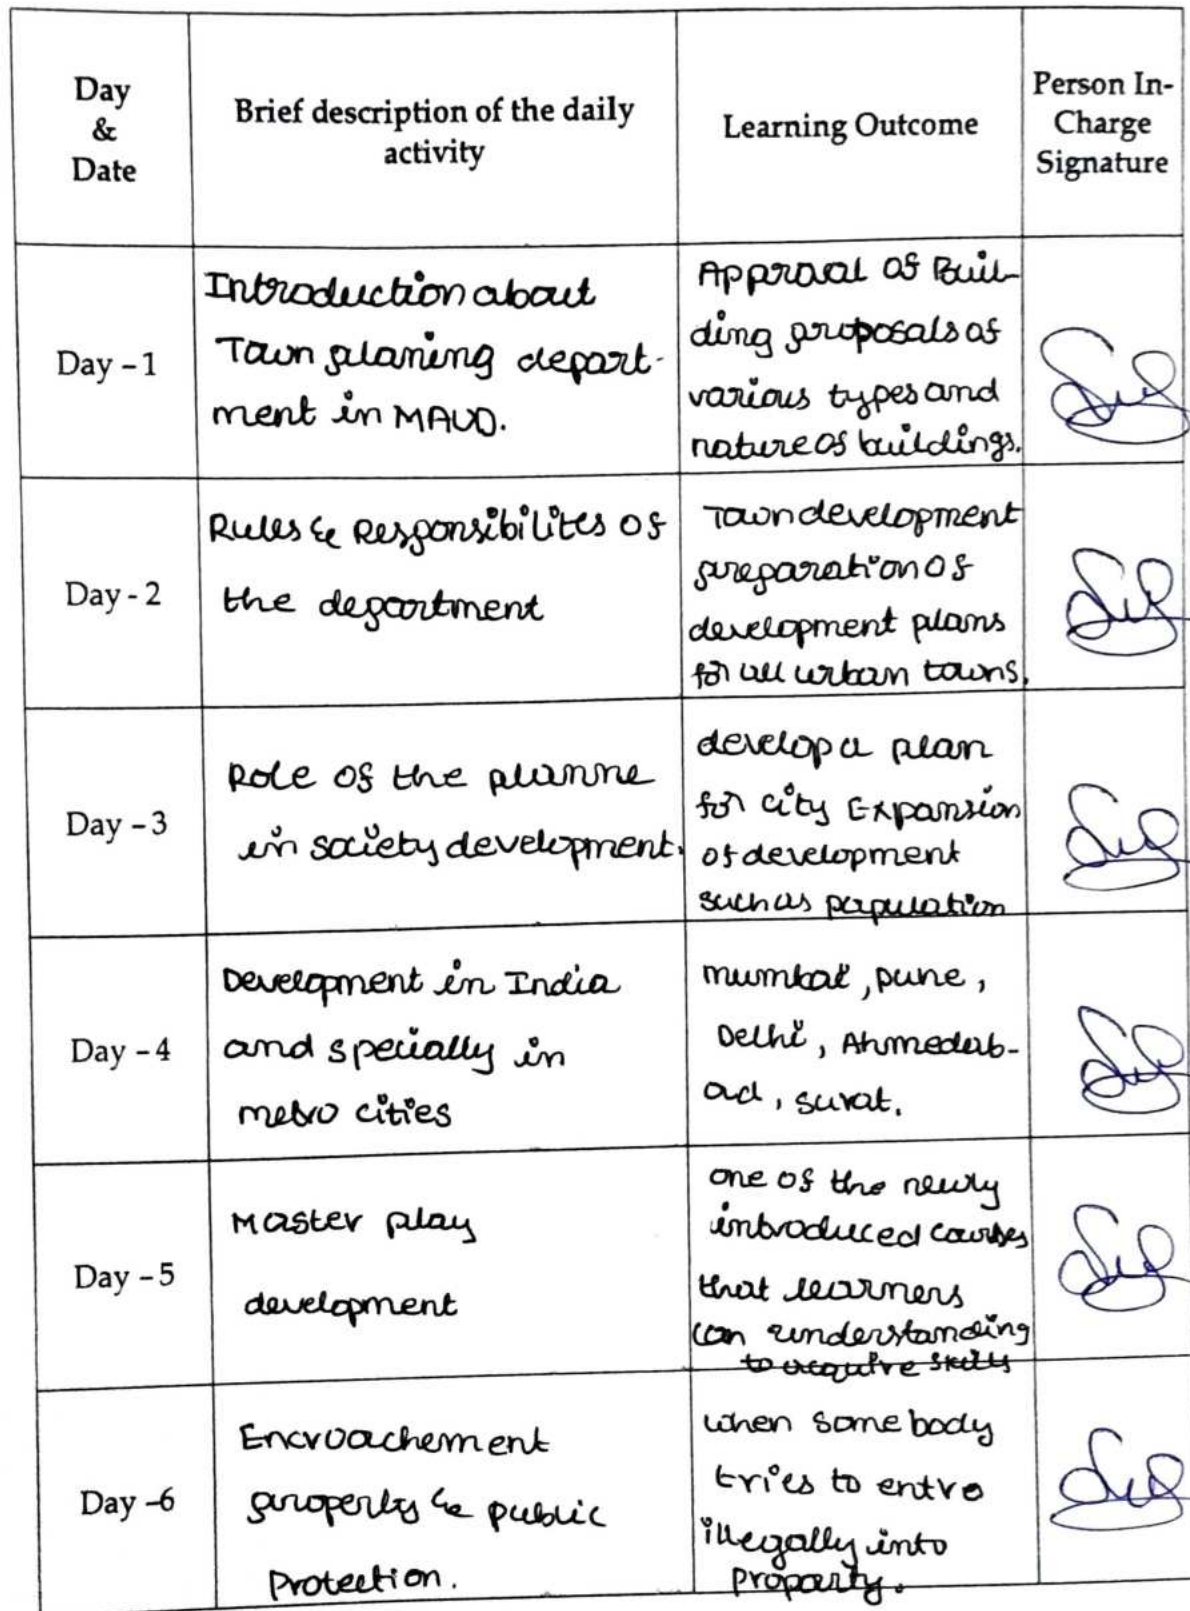 Day
&
Date
Brief description of the daily
activity
Learning Outcome
Person In-
Charge
Signature
Day - 1
Introduction about
Town planing depart-
ment in MAUD.
Appraoal of Buil-
ding proposals of
various types and
nature of buildings.
Day - 2
Rules & Responsibilites of
the department
Town development
preparation of
development plans
for all urban towns.
Day - 3
Role of the planne
in society development.
develop a plan
for city Expansion
of development
such as population
Day - 4
Development in India
and specially in
metro cities
mumbai, pune,
Delhi, Ahmedab-
ad, surat.
Day - 5
Master play
development
one of the newly
introduced courses
that learners
can understanding
to acquire skills
Day -6
Encroachement
property & public
Protection.
when somebody
tries to entre
illegally into
Proparty.